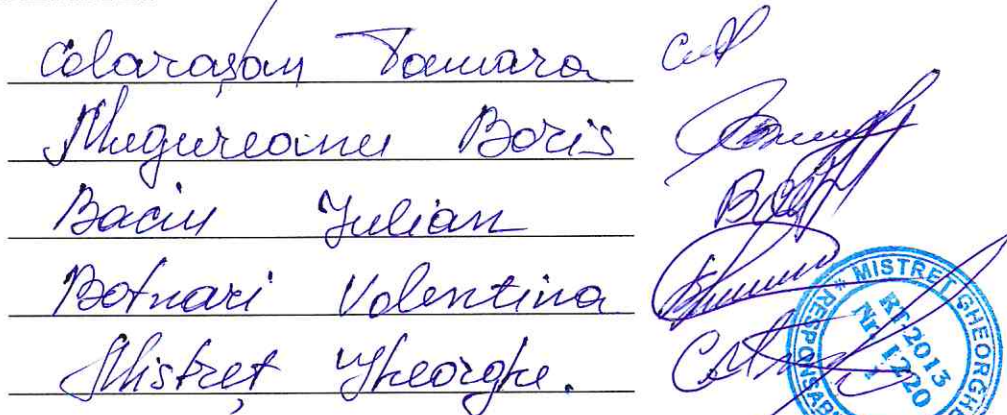 Calarașan Tamara
Magureanu Boris
Baciu Iulian
Botnari Valentina
Mistreț Gheorghe.
MISTREȚ GHEORGHE
RESPONSABIL
RT-2013
Nr. 1220